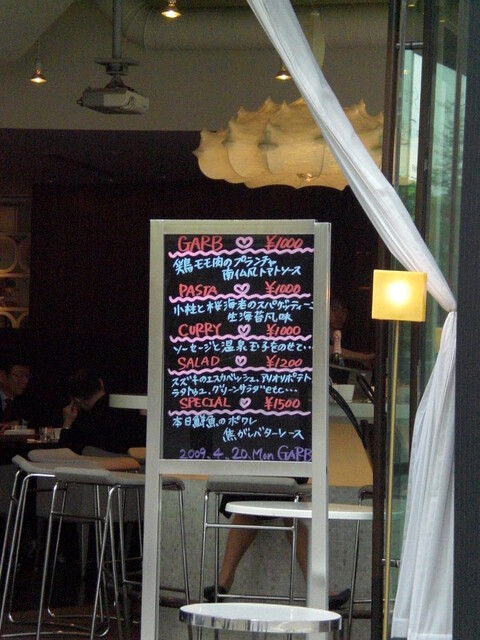 GARB ♡ ¥1000
鶏モモ肉のプランチャ
南仏風トマトソース
PASTA ♡ ¥1000
小柱と桜海老のスパゲッティーニ
生海苔風味
CURRY ♡ ¥1000
ソーセージと温泉玉子をのせて…
SALAD ♡ ¥1200
スズキのエスカベッシュ、アリオリポテト
ラタトゥユ、グリーンサラダ etc…
SPECIAL ♡ ¥1500
本日鮮魚のポワレ
焦がしバターソース
2009.4.20.Mon GARB